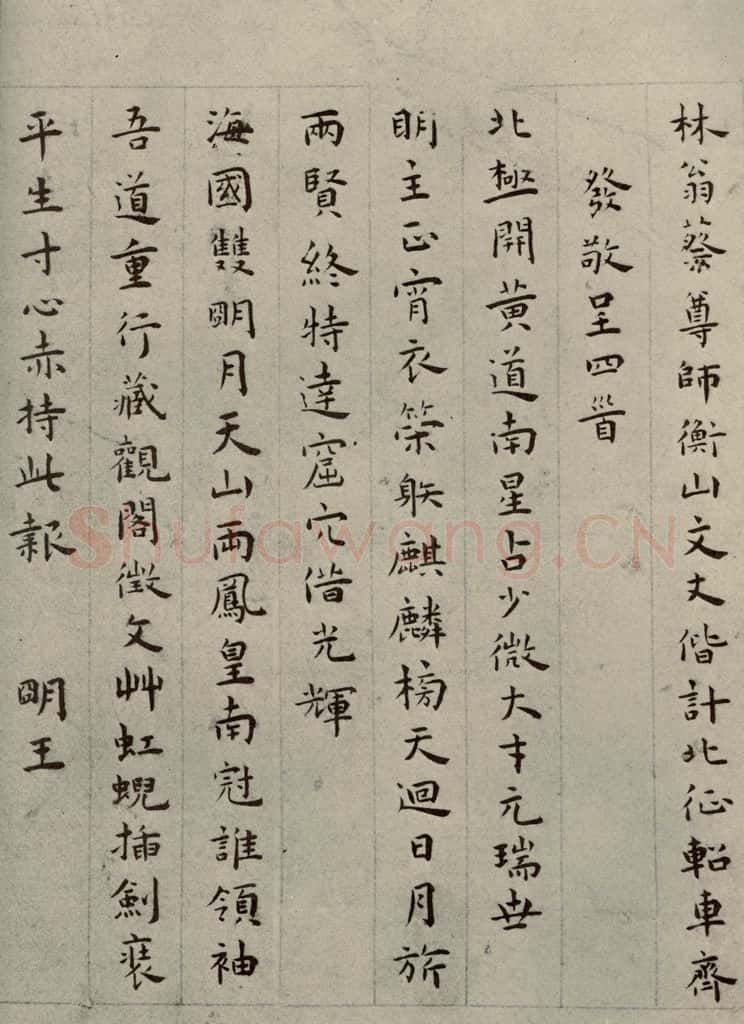 林翁蔡尊師衡山文丈偕計北征軺車齊
發敬呈四首
北極開黄道南星占少微大才元瑞世
明主正宵衣策射麒麟榜天迴日月旂
兩賢終特達窟穴借光輝
海國雙明月天山兩鳳皇南冠誰領袖
吾道重行藏觀閣徵文艸虹蜺插劍裝
平生寸心赤持此報 明王
Shufawang.CN